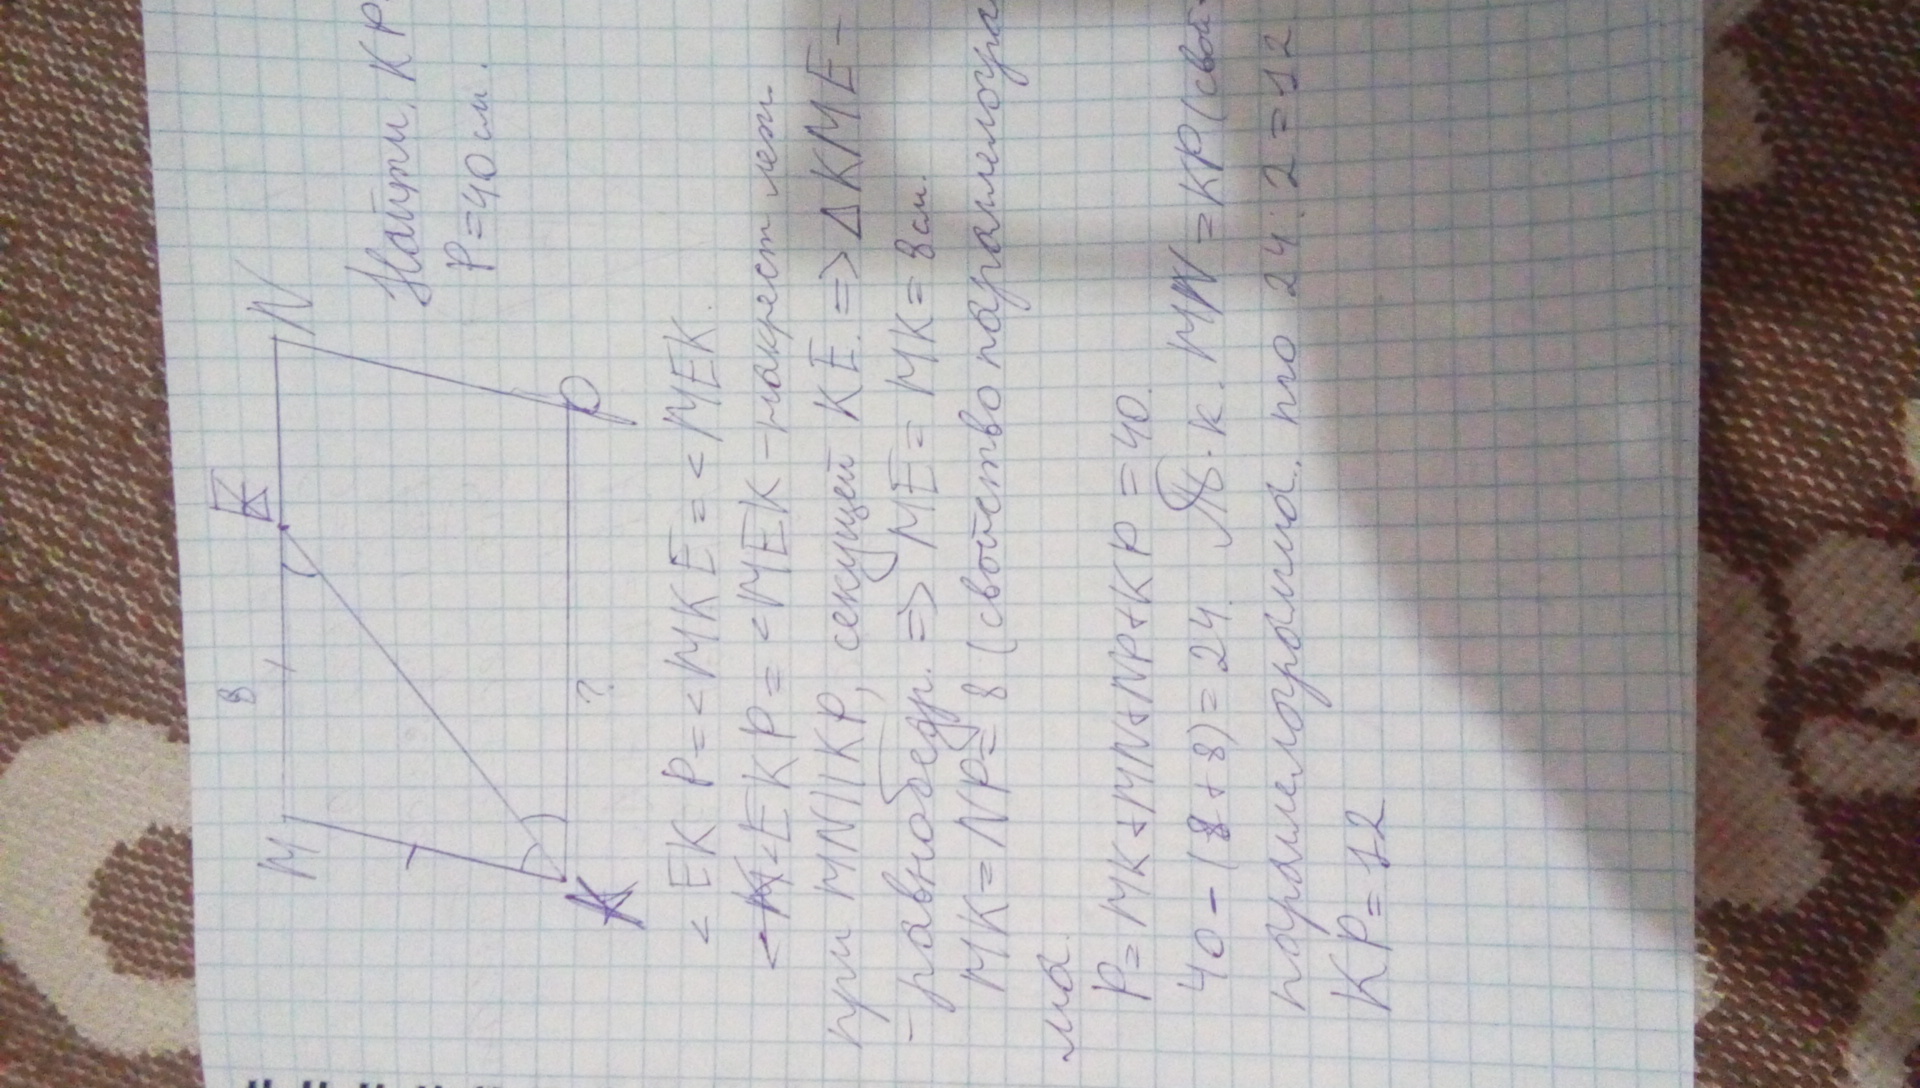 8
M
E
N
K
P
?
Найти KP.
P=40 см.
< EK P=<MKE=<MEK.
<EKP=<MEK-накрест леж.
при MN||KP, секущей KE. => Δ KME-
-равнобедр. => ME=MK=8см.
MK=NP=8 (свойство параллелогра
ма.
P=MK+MN+NP+KP=40.
40-(8+8)=24. Т.к. MN=KP(свой-
параллелограмма, то 24:2=12
KP=12